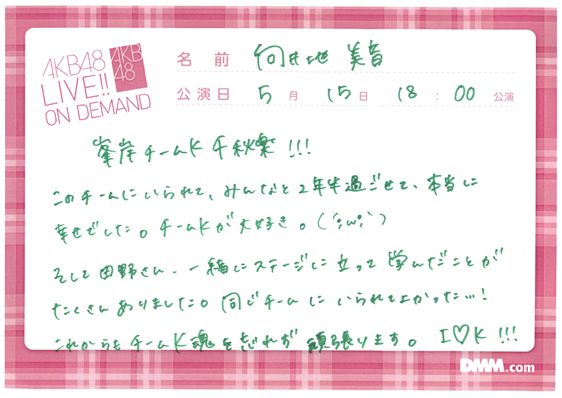 AKB48
LIVE!!
ON DEMAND
AKB
48
名前 向井地 美音
公演日 5月 15日 18:00 公演
峯岸チームK 千秋楽!!!
このチームにいられて、みんなと2年半過ごせて、本当に
幸せでした。チームKが大好き。(´;ω;`)
そして田野さん、一緒にステージに立って学んだことが
たくさんありました。同じチームにいられてよかった…!
これからもチームK魂を忘れず頑張ります。I♡K!!!
DMM.com